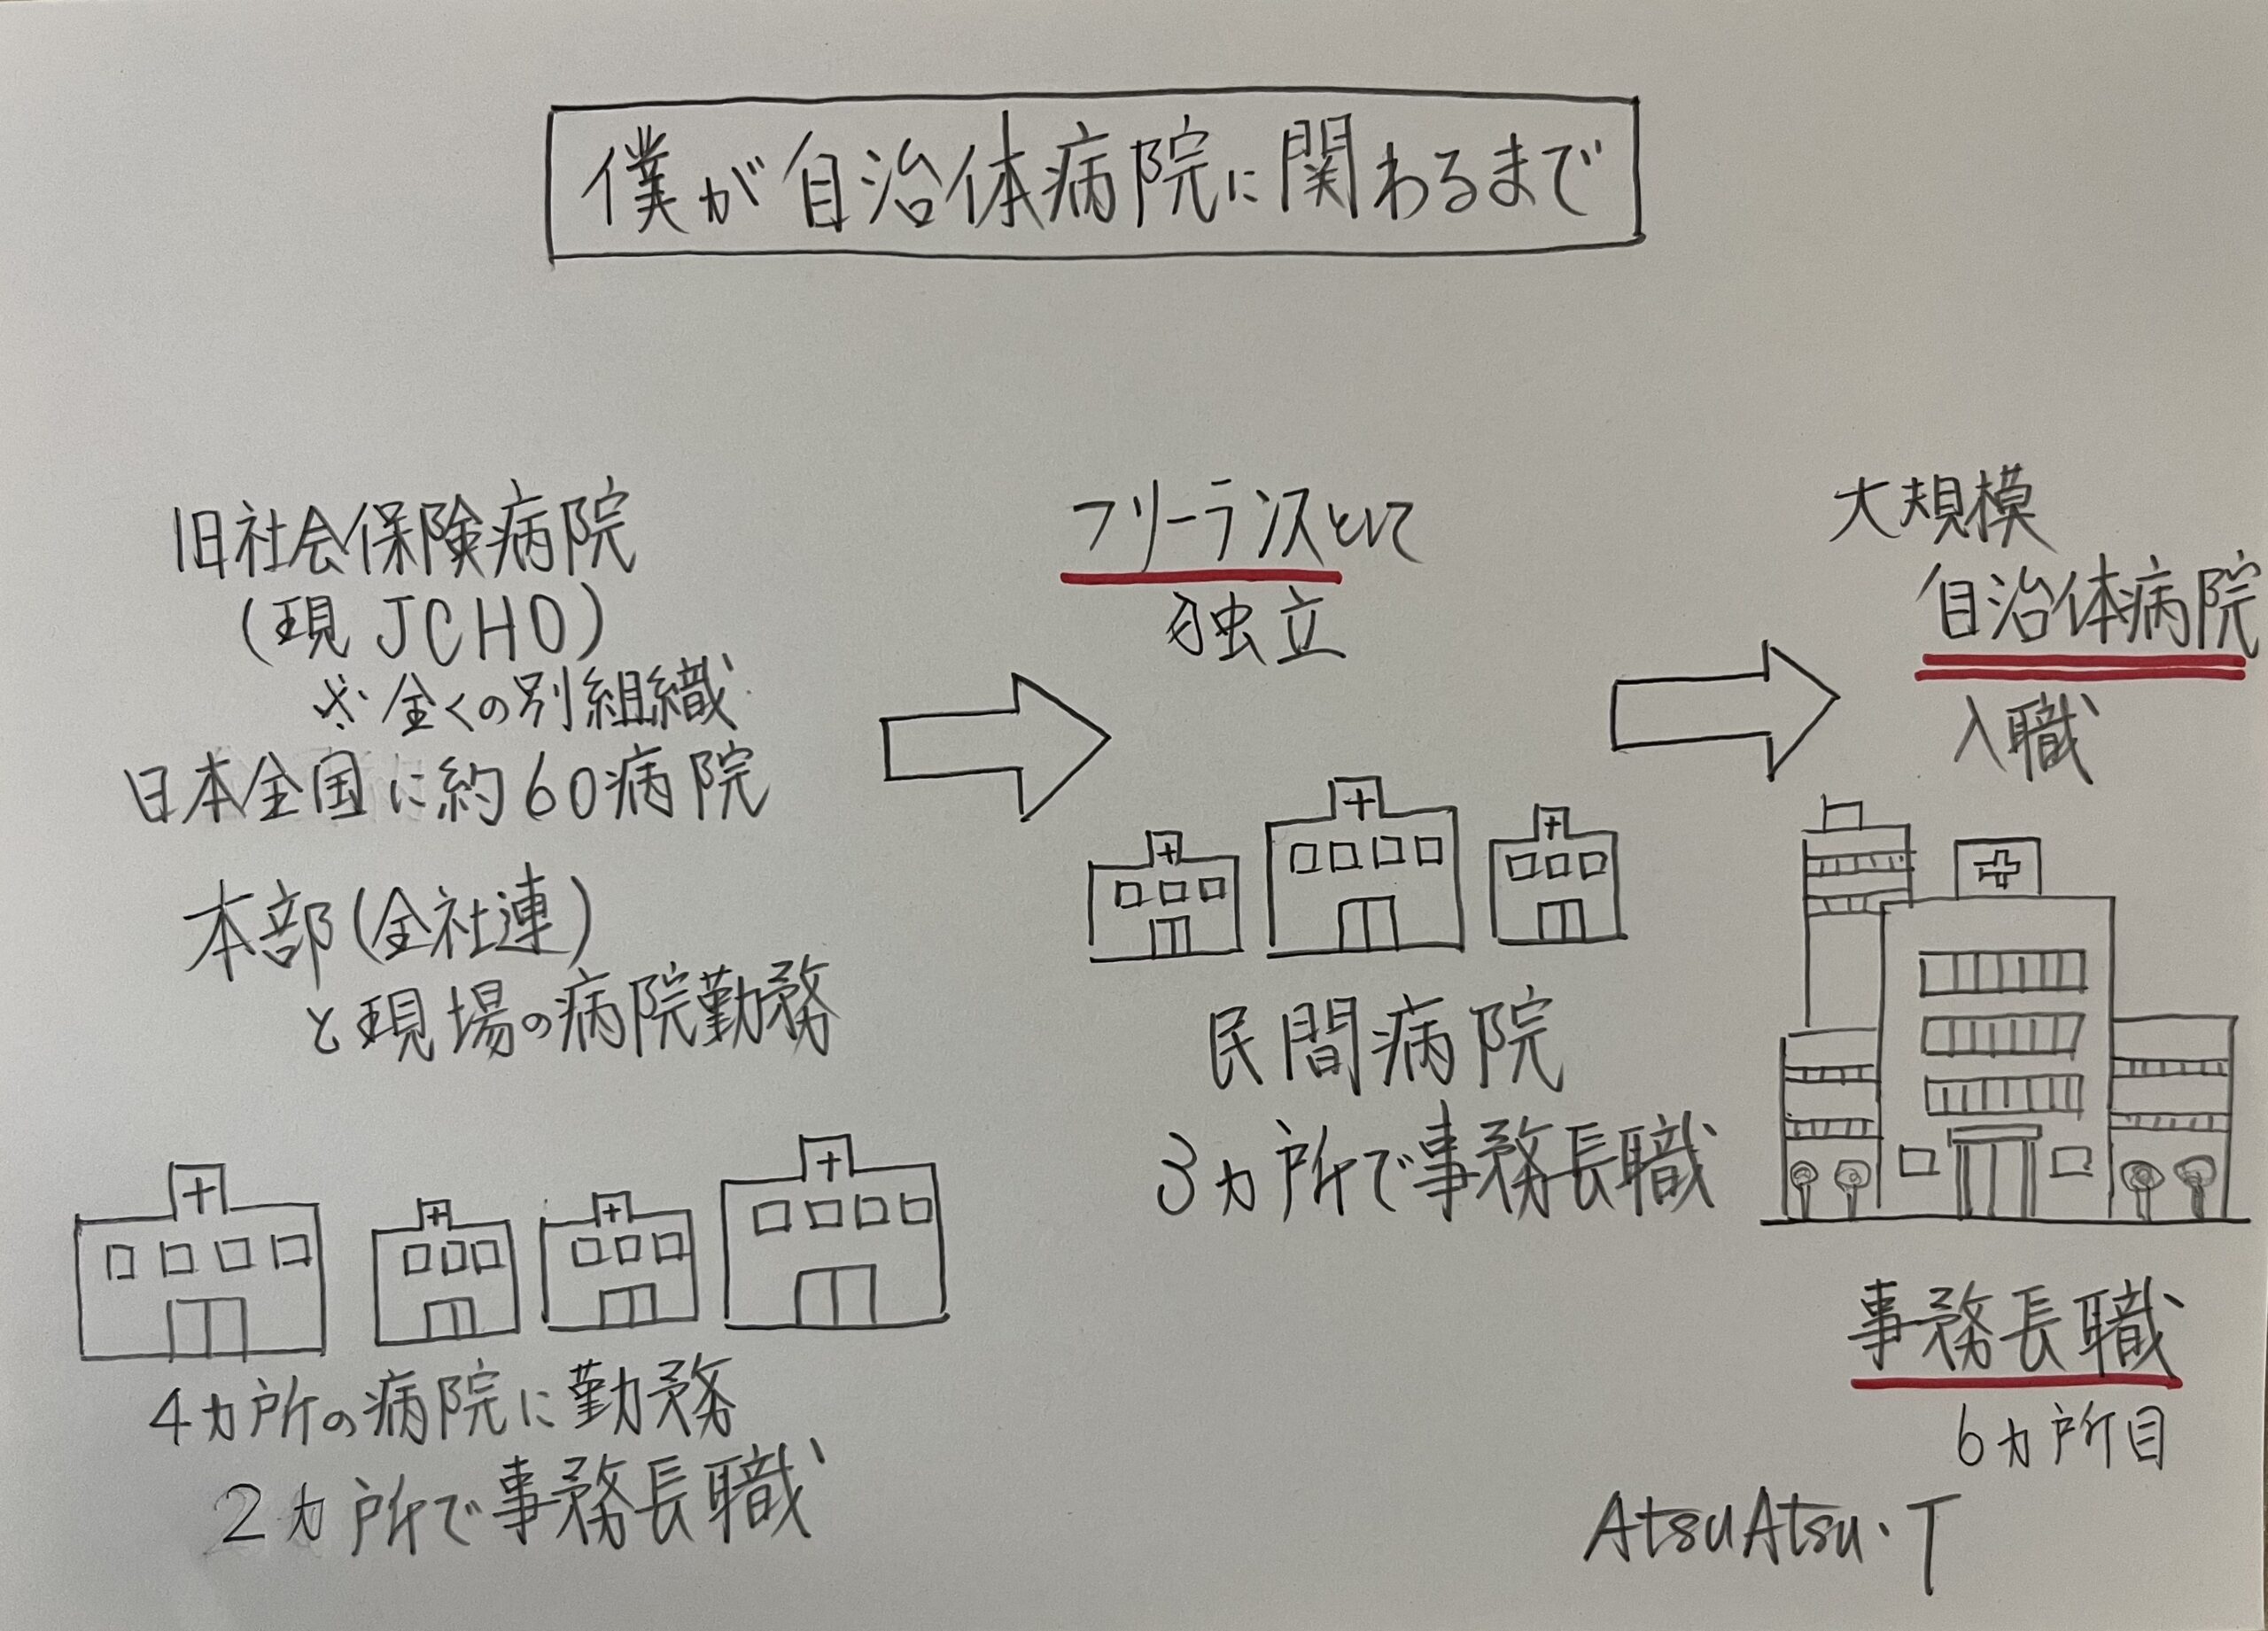 僕が自治体病院に関わるまで
旧社会保険病院
(現 JCHO)
※全くの別組織
日本全国に約60病院
本部(全社連)
と現場の病院勤務
4カ所の病院に勤務
2カ所で事務長職
フリーランスとして
独立
民間病院
3カ所で事務長職
大規模
自治体病院
入職
事務長職
6カ所目
AtsuAtsu.T